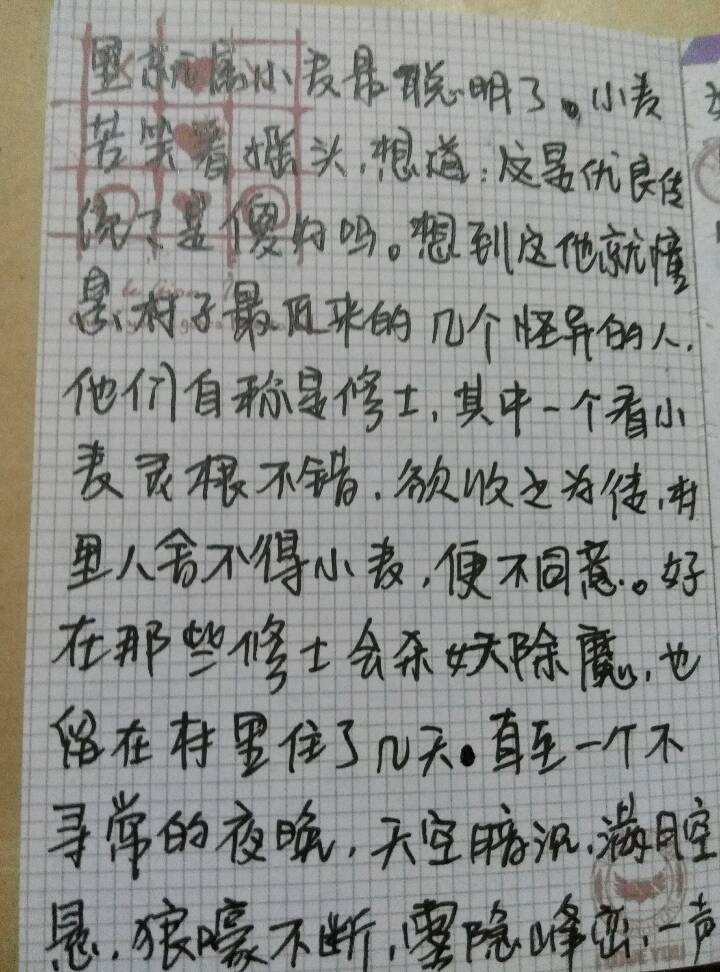 里就属小麦最聪明了。小麦
苦笑着摇头,想道:这是优良传
统?是傻好吗。想到这他就懂
村子最近来的几个怪异的人,
他们自称是修士,其中一个看小
麦灵根不错,欲收之为徒,村
里人舍不得小麦,便不同意。好
在那些修士会杀妖除魔,也
留在村里住了几天。直至一个不
寻常的夜晚,天空暗沉,满月空
悬,狼嚎不断,雾隐峰峦,一声